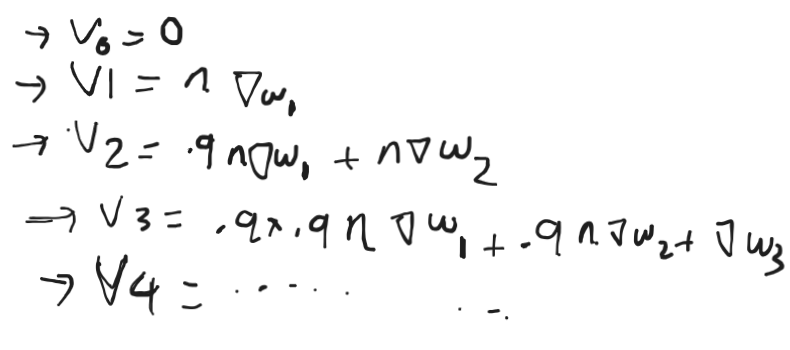 → V₀ = 0
→ V1 = η ∇w₁
→ V2 = .9 η∇w₁ + η∇w₂
→ V3 = .9×.9 η ∇w₁ + .9 η ∇w₂ + ∇w₃
→ V4 = ..... ...